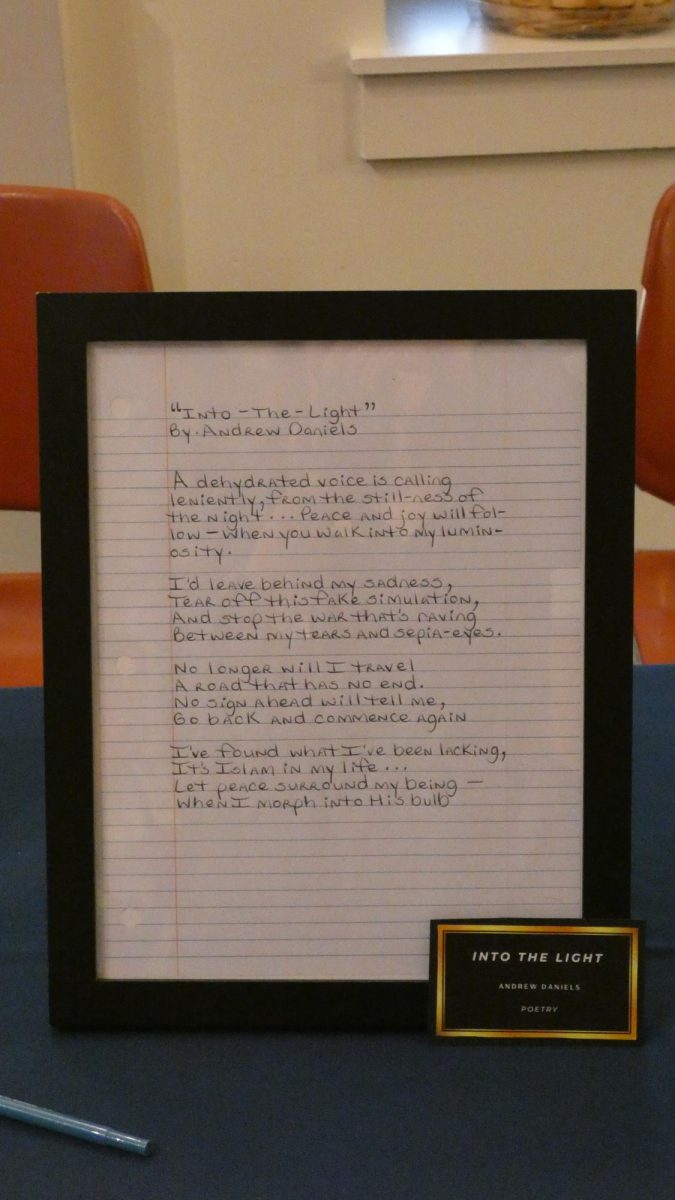 "Into-The-Light"
By. Andrew Daniels
A dehydrated voice is calling
leniently, from the still-ness of
the night... Peace and joy will fol-
low - when you walk into my lumin-
osity.
I'd leave behind my sadness,
Tear off this fake simulation,
And stop the war that's raving
Between my tears and sepia-eyes.
No longer will I travel
A road that has no end.
No sign ahead will tell me,
Go back and commence again
I've found what I've been lacking,
It's Islam in my life...
Let peace surround my being —
When I morph into His bulb
INTO THE LIGHT
ANDREW DANIELS
POETRY